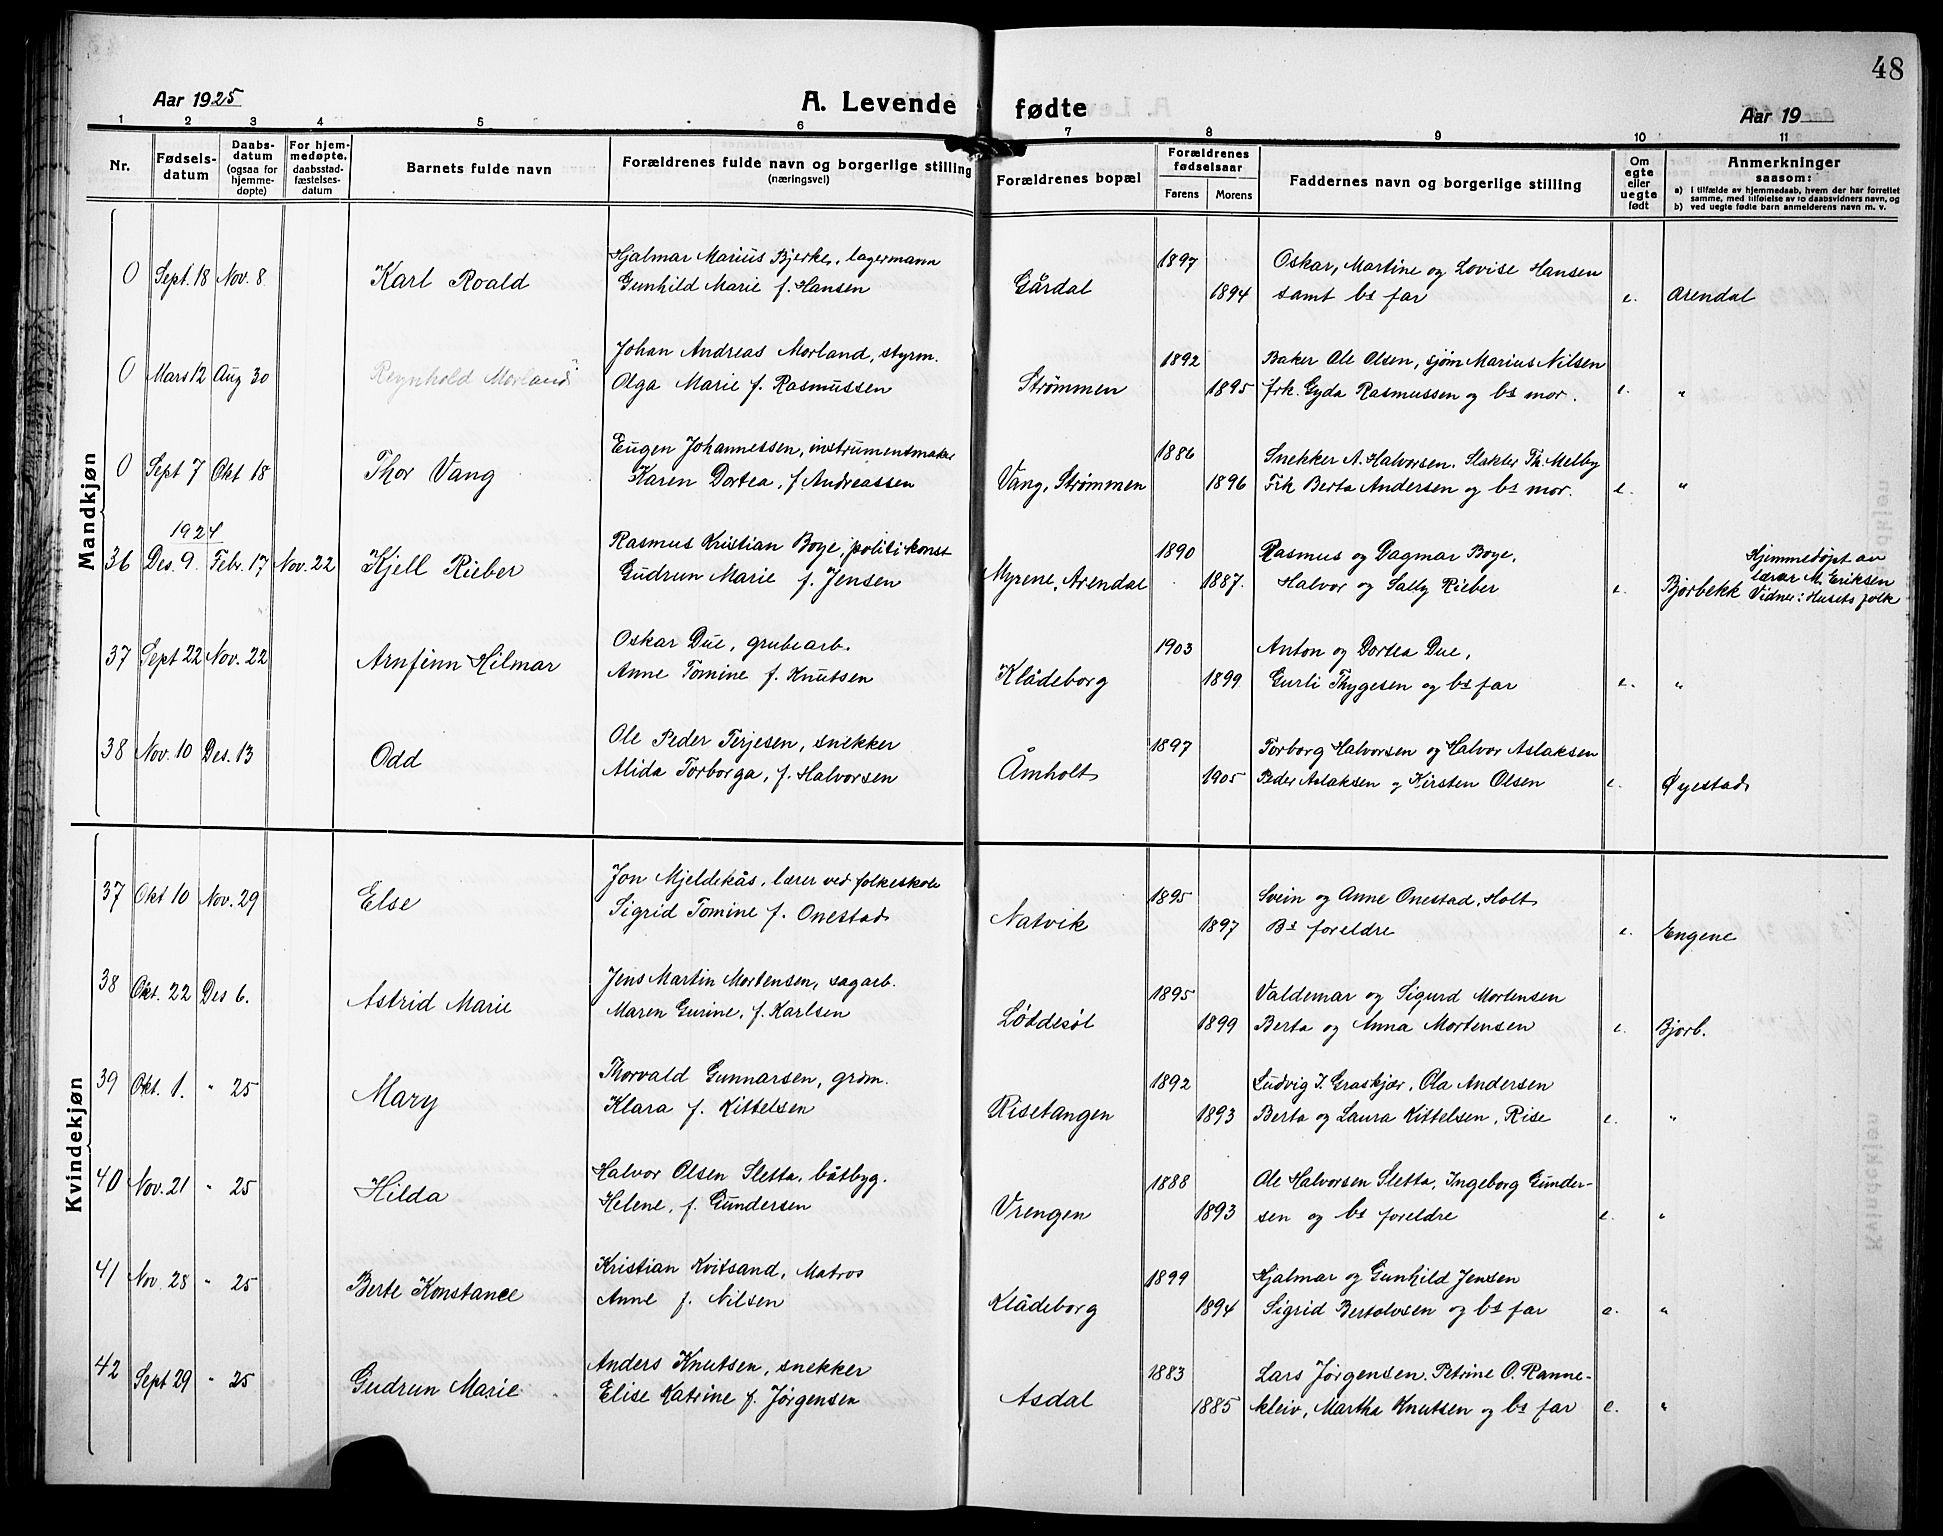 48
Aar 1925 A. Levende fødte Aar 19
1 2 3 4 5 6 7 8 9 10 11
Nr. Fødsels-datum Daabs-datum (ogsaa for hjemme-døpte) For hjem-medøpte, daabsstad-fæstelses-datum Barnets fulde navn Forældrenes fulde navn og borgerlige stilling (næringsvei) Forældrenes bopæl Forældrenes fødselsaar Farens Morens Faddernes navn og borgerlige stilling Om egte eller uegte født Anmerkninger saasom: a) i tilfælde av hjemmedaab, hvem der har forrettet samme, med tilføielse av to daabsvidners navn, og b) ved uegte fødte barn anmelderens navn m. v.
Mandkjøn
Hjalmar Marius Bjerke, lagermann 1897 Oskar, Martine og Lovise Hansen
0 Sept. 18 Nov. 8 Karl Roald Gunhild Marie f. Hansen Gårdal 1894 samt bs far e. Arendal
Johan Andreas Morland, styrm. 1892 Baker Ole Olsen, sjøm Marius Nilsen
0 Mars 12 Aug 30 Reynhold Morland Olga Marie f. Rasmussen Strømmen 1895 frk. Gyda Rasmussen og bs mor. e. "
Eugen Johannessen, instrumentmaker 1886 Snekker A. Halvorsen, Slakter Th. Melby
0 Sept 7 Okt 18 Thor Vang Karen Dortea, f Andreassen Vang, Strømmen 1896 Frk Berta Andersen og bs mor. e. "
1924 Rasmus Kristian Boye, politikonst 1890 Rasmus og Dagmar Boye, Hjemmedøpt av
lærer M. Eriksen
36 Des. 9. Febr. 17 Nov. 22 Kjell Rieber Gudrun Marie f. Jensen Myrene, Arendal 1887. Halvor og Sally Rieber e. Bjorbekk Vidner: Husets folk
Oskar Due, grubearb. 1903 Anton og Dortea Due,
37 Sept 22 Nov. 22 Arnfinn Hilmar Anne Tomine f. Knutsen Klådeborg 1899 Gurli Thygesen og bs far e. "
Ole Peder Terjesen, snekker 1897 Torborg Halvorsen og Halvor Aslaksen
38 Nov. 10 Des. 13 Odd Alida Torborga, f. Halvorsen Åmholt 1905 Peder Aslaksen og Kirsten Olsen e. Øyestad
Kvindekjøn
Jon Mjeldekås, lærer ved folkeskole 1895 Svein og Anne Onestad, Holt
37 Okt 10 Nov. 29 Else Sigrid Tomine f. Onestad Natvik 1897 Bs foreldre e. Engene
Jens Martin Mortensen, sagarb. 1895 Valdemar og Sigurd Mortensen
38 Okt. 22 Des 6. Astrid Marie Maren Gurine, f. Karlsen Løddesøl 1899 Berta og Anna Mortensen e. Bjorb.
Thorvald Gunnarsen, grdm. 1892 Ludvig J. Graskjær, Ola Andersen
39 Okt. 1. " 25 Mary Klara f. Kittelsen Risetangen 1893 Berta og Laura Kittelsen, Rise e. "
Halvor Olsen Sletta, båtbyg. 1888 Ole Halvorsen Sletta, Ingeborg Gunder-
40 Nov. 21 " 25 Hilda Helene, f. Gundersen Vrengen 1893 sen og bs foreldre e. "
Kristian Kvitsand, Matros 1899 Hjalmar og Gunhild Jensen
41 Nov. 28 " 25 Berte Konstance Anne f. Nilsen Klådeborg 1894 Sigrid Bertelvsen og bs far e. "
Anders Knutsen, snekker 1883 Lars Jørgensen, Petrine O. Ranne-
42 Sept 29 " 25 Gudrun Marie Elise Katrine f. Jørgensen Asdal 1885 kleiv, Martha Knutsen og bs far e. "